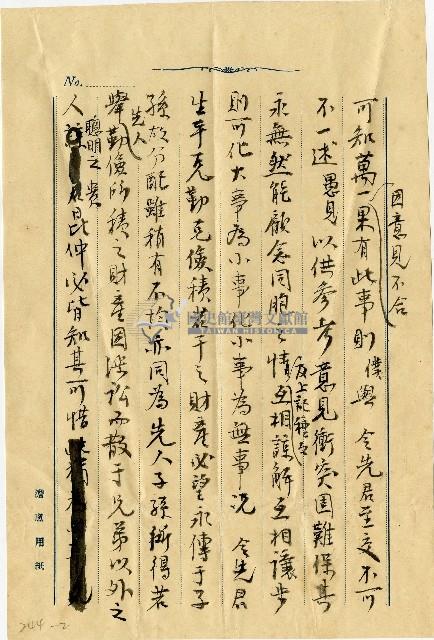 No.
因意見不合
可知萬一果有此事則僕與令先君至交不可
不一述愚見以供參考意見衝突固難保其
永無然能顧念同胞之情互相諒解互相讓步
反上記種々
則可化大事為小事化小事為無事況令先君
生平克勤克儉積若干之財產必望永傳于子
孫故分配雖稍有不均亦同為先人子孫所得若
先人
舉勤儉所積之財產因涉訟而散于兄弟以外之
聰明之貴
人 昆仲必皆知其可惜
用紙
國史館臺灣文獻館
TAIWAN HISTORICA
244-2